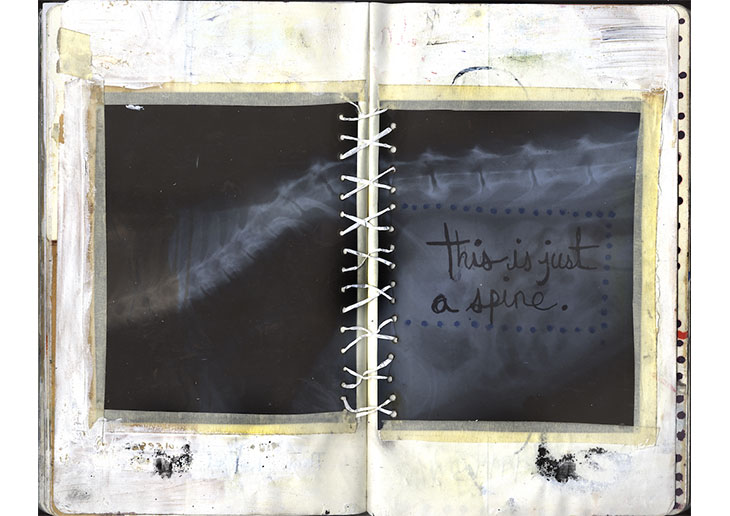 this is just
a spine.